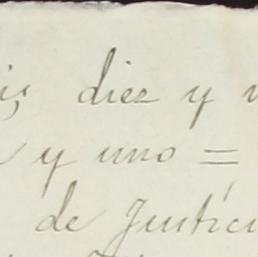 diez y
y uno =
de Justici